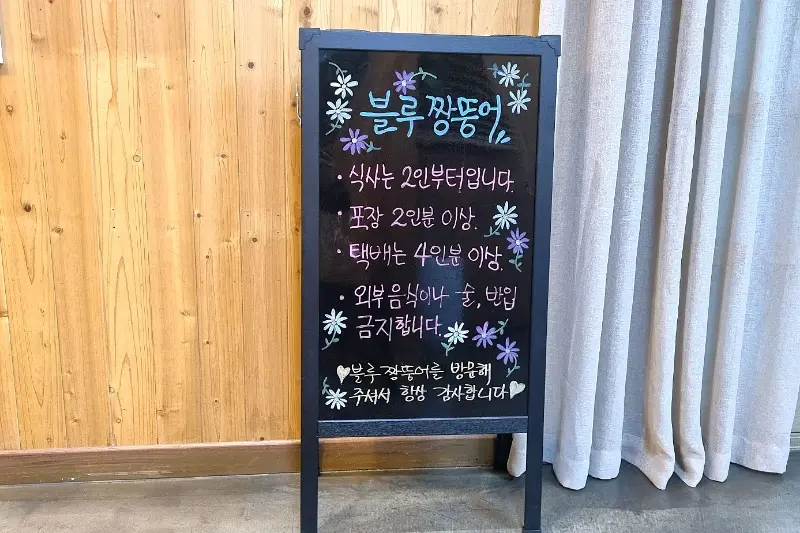 블루 짱뚱어
· 식사는 2인부터입니다.
· 포장 2인분 이상.
· 택배는 4인분 이상.
· 외부음식이나 술, 반입
금지합니다.
블루 짱뚱어를 방문해
주셔서 항상 감사합니다